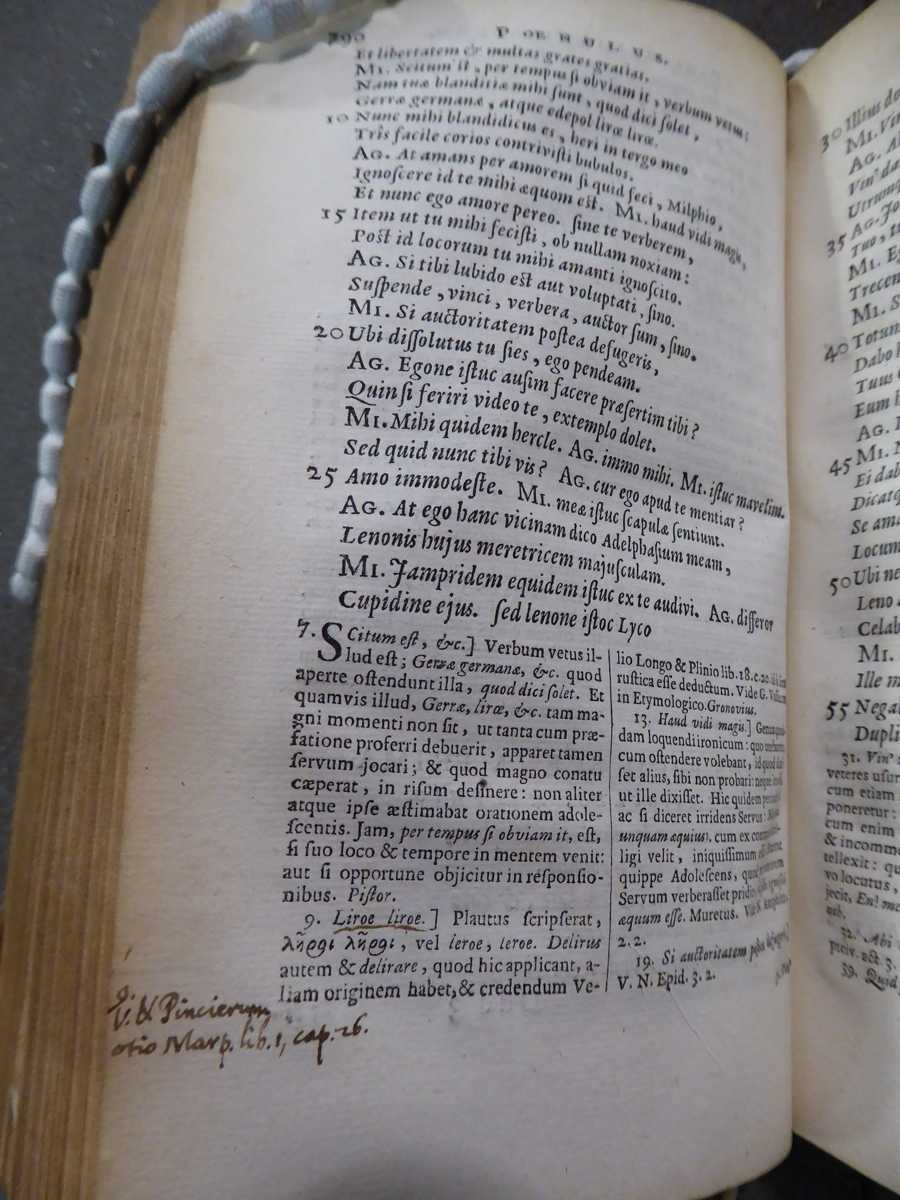 290 POENULUS.
Et libertatem & multas grates gratias.
MI. Scitum 'st, per tempus si obviam it, verbum vetus:
Nam tuæ blanditiæ mihi sunt, quod dici solet,
Gerræ germanæ, atque edepol liroe liroe.
10 Nunc mihi blandidicus es, heri in tergo meo
Tris facile corios contrivisti bubulos.
AG. At amans per amorem si quid feci, Milphio,
Ignoscere id te mihi æquom est. MI. haud vidi magis,
Et nunc ego amore pereo. sine te verberem,
15 Item ut tu mihi fecisti, ob nullam noxiam:
Post id locorum tu mihi amanti ignoscito.
AG. Si tibi lubido est aut voluptati, sino.
Suspende, vinci, verbera, auctor sum, sino.
MI. Si auctoritatem postea defugeris,
20 Ubi dissolutus tu sies, ego pendeam.
AG. Egone istuc ausim facere præsertim tibi?
Quin si feriri video te, extemplo dolet.
MI. Mihi quidem hercle. AG. immo mihi. MI. istuc mavelim.
Sed quid nunc tibi vis? AG. cur ego apud te mentiar?
25 Amo immodeste. MI. meæ istuc scapulæ sentiunt.
AG. At ego hanc vicinam dico Adelphasium meam,
Lenonis hujus meretricem majusculam.
MI. Jampridem equidem istuc ex te audivi. AG. differor
Cupidine ejus. sed lenone istoc Lyco
7. SCitum est, &c.] Verbum vetus il-
lud est; Gerræ germanæ, &c. quod
aperte ostendunt illa, quod dici solet. Et
quamvis illud, Gerræ, liræ, &c. tam ma-
gni momenti non sit, ut tanta cum præ-
fatione proferri debuerit, apparet tamen
servum jocari; & quod magno conatu
cœperat, in risum desinere: non aliter
atque ipse æstimabat orationem adole-
scentis. Jam, per tempus si obviam it, est,
si suo loco & tempore in mentem venit:
aut si opportune objicitur in responsio-
nibus. Pistor.
9. Liroe liroe.] Plautus scripserat,
λῆροι λῆροι, vel leroe, leroe. Delirus
autem & delirare, quod hic applicant, a-
liam originem habet, & credendum Ve-
lio Longo & Plinio lib. 18. c. 20.
rustica esse deductum. Vide G.
in Etymologico. Gronovius.
13. Haud vidi magis.] Genus
dam loquendi ironicum: quo
cum ostendere volebant, id quod
set alius, sibi non probari: neque
ut ille dixisset. Hic quidem
ac si diceret irridens Servus:
unquam æquius. cum ex
ligi velit, iniquissimum
quippe Adolescens,
Servum verberasset pridie,
æquum esse. Muretus.
2. 2.
19. Si auctoritatem
V. N. Epid. 3. 2.
9. V. & Pincierum
otio Marp. lib. 1, cap. 26.
30 Illius
MI.
AG.
Vin'
35 AG.
Tuo,
MI.
MI. S
40 Totum
Dabo
Tuus
Eum
AG.
45 MI.
Ei dab
Dicatq
Se ama
Locum
50 Ubi ne
Leno
Celab
MI.
Ille m
55 Nega
Dupli
31. Vin'
veteres usur
cum etiam
poneretur:
cum enim
& incomm
tellexit: qu
vo locutus,
jecit, En!
32. Abi
39. Quid